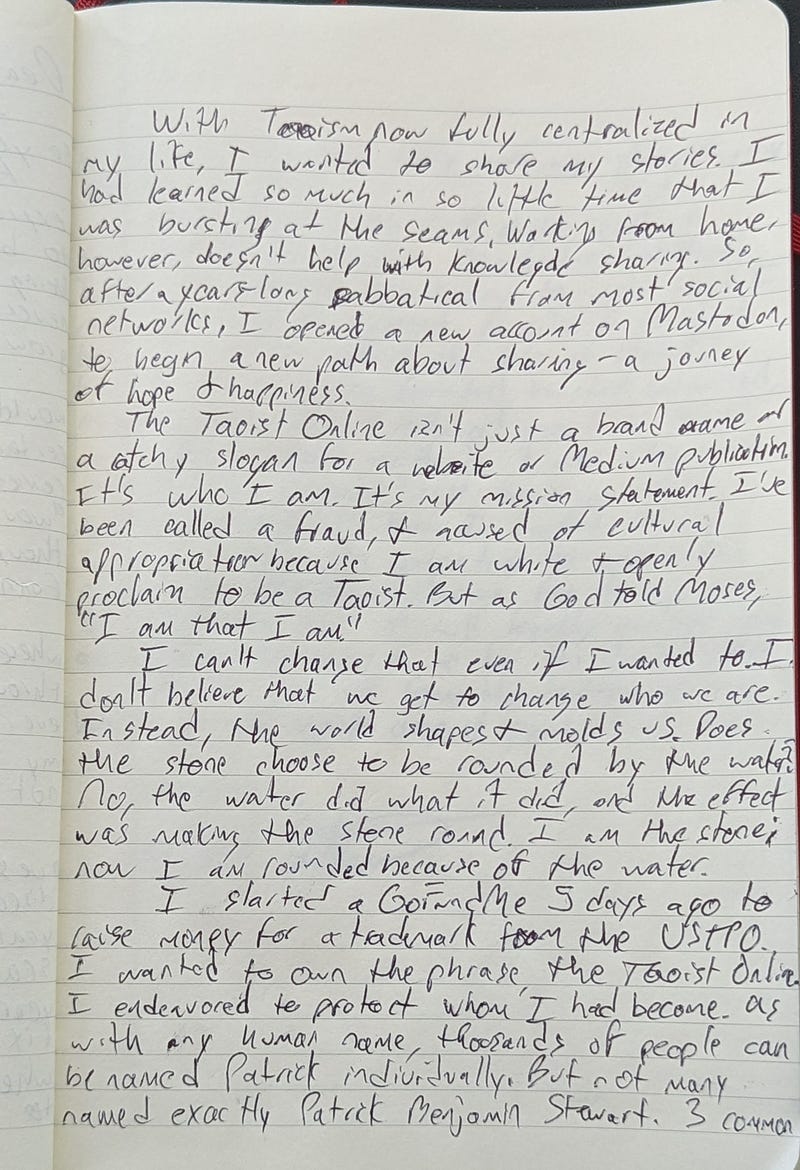 With Taoism now fully centralized in
my life, I wanted to share my stories. I
had learned so much in so little time that I
was bursting at the seams. Working from home,
however, doesn't help with knowlegde sharing. So,
after a years-long sabbatical from most social
networks, I opened a new account on Mastodon,
to begin a new path about sharing - a jorney
of hope & happiness.
The Taoist Online isn't just a brand name or
a catchy slogan for a website or Medium publication.
It's who I am. It's my mission statement. I've
been called a fraud, & accused of cultural
appropriation because I am white & openly
proclaim to be a Taoist. But as God told Moses,
"I am that I am"
I can't change that even if I wanted to. I
don't believe that we get to change who we are.
Instead, the world shapes & molds us. Does
the stone choose to be rounded by the water?
No, the water did what it did, and the effect
was making the stone round. I am the stone;
now I am rounded because of the water.
I started a GoFundMe 5 days ago to
raise money for a trademark from the USTPO.
I wanted to own the phrase, the Taoist Online.
I endeavored to protect whom I had become. as
with any human name, thousands of people can
be named Patrick individually. But not many
named exactly Patrick Benjamin Stewart. 3 common